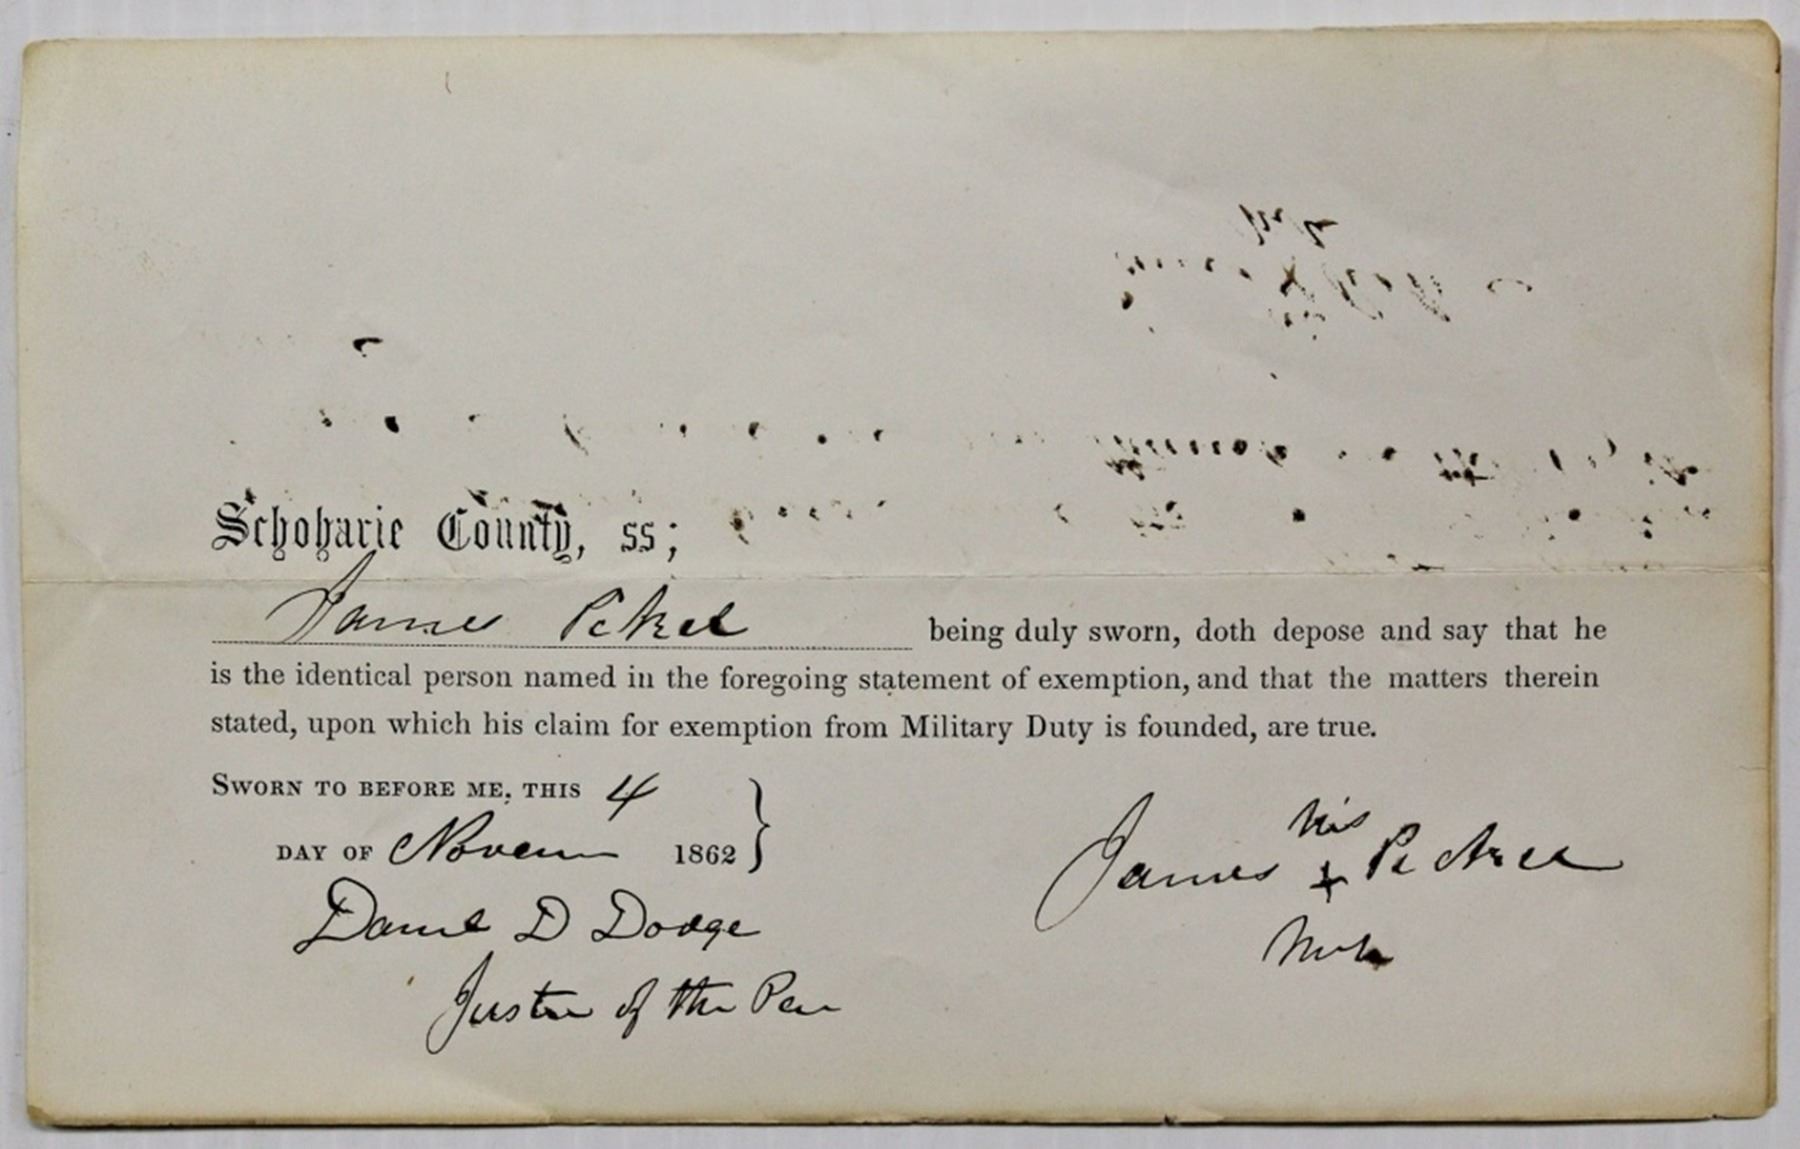 Schoharie County, ss;
James Pckel being duly sworn, doth depose and say that he
is the identical person named in the foregoing statement of exemption, and that the matters therein
stated, upon which his claim for exemption from Military Duty is founded, are true.
Sworn to before me, this 4
day of Novem 1862
Daniel D Dodge
Justice of the Pea
his
James +